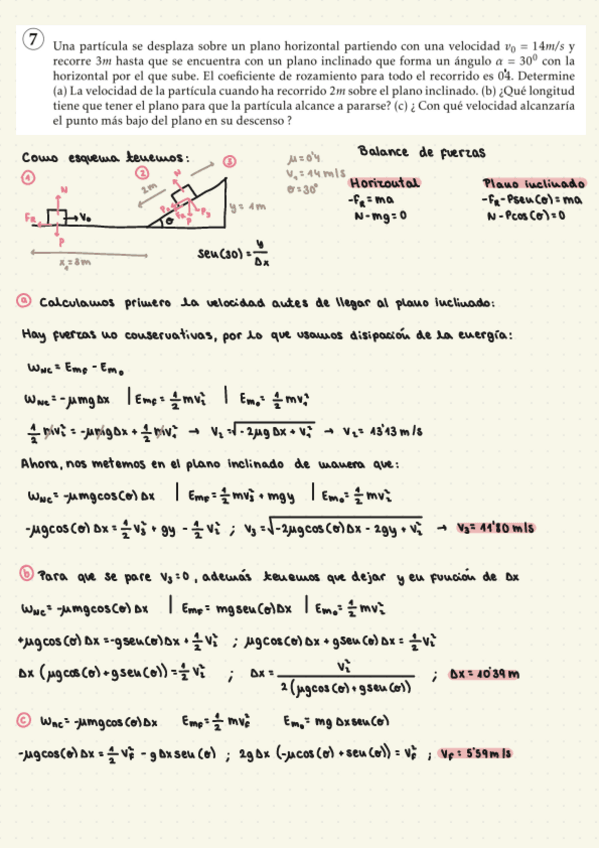 7 Una partícula se desplaza sobre un plano horizontal partiendo con una velocidad v₀ = 14m/s y
recorre 3m hasta que se encuentra con un plano inclinado que forma un ángulo α = 30⁰ con la
horizontal por el que sube. El coeficiente de rozamiento para todo el recorrido es 0'4. Determine
(a) La velocidad de la partícula cuando ha recorrido 2m sobre el plano inclinado. (b) ¿Qué longitud
tiene que tener el plano para que la partícula alcance a pararse? (c) ¿ Con qué velocidad alcanzaría
el punto más bajo del plano en su descenso ?
Como esquema tenemos:
μ = 0'4
v₁ = 14 m/s
θ = 30°
Balance de fuerzas
Horizontal
-FR = ma
N - mg = 0
Plano inclinado
-FR - Psen(θ) = ma
N - Pcos(θ) = 0
1
2
3
N
FR
V₀
P
2m
N
P
θ
y = 1m
x₁ = 3m
sen(30) = y/Δx
a Calculamos primero la velocidad antes de llegar al plano inclinado:
Hay fuerzas no conservativas, por lo que usamos disipación de la energía:
WNC = Emf - Em₀
WNC = -μmgΔx | Emf = 1/2 mv₂² | Em₀ = 1/2 mv₁²
1/2 mv₂² = -μmgΔx + 1/2 mv₁² → V₂ = √(-2μgΔx + v₁²) → V₂ = 13'13 m/s
Ahora, nos metemos en el plano inclinado de manera que:
WNC = -μmgcos(θ)Δx | Emf = 1/2 mv₃² + mgy | Em₀ = 1/2 mv₂²
-μgcos(θ)Δx = 1/2 v₃² + gy - 1/2 v₂² ; V₃ = √(-2μgcos(θ)Δx - 2gy + v₂²) → V₃ = 11'80 m/s
b Para que se pare V₃ = 0, además tenemos que dejar y en función de Δx
WNC = -μmgcos(θ)Δx | Emf = mgsen(θ)Δx | Em₀ = 1/2 mv₂²
+μgcos(θ)Δx = -gsen(θ)Δx + 1/2 v₂² ; μgcos(θ)Δx + gsen(θ)Δx = 1/2 v₂²
Δx (μgcos(θ) + gsen(θ)) = 1/2 v₂² ; Δx = v₂² / 2(μgcos(θ) + gsen(θ)) ; Δx = 10'39 m
c WNC = -μmgcos(θ)Δx Emf = 1/2 mvf² Em₀ = mgΔxsen(θ)
-μgcos(θ)Δx = 1/2 vf² - gΔxsen(θ) ; 2gΔx (-μcos(θ) + sen(θ)) = vf² ; Vf = 5'59 m/s